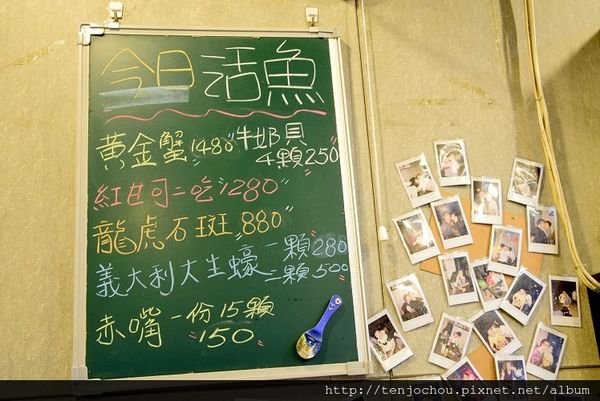 今日活魚
黃金蟹1480
牛奶貝
4顆250
紅甘可二吃1280
龍虎石斑880
義大利大生蠔一顆280
二顆500
赤嘴一份15顆
150
http://tenjochou.pixnet.net/album